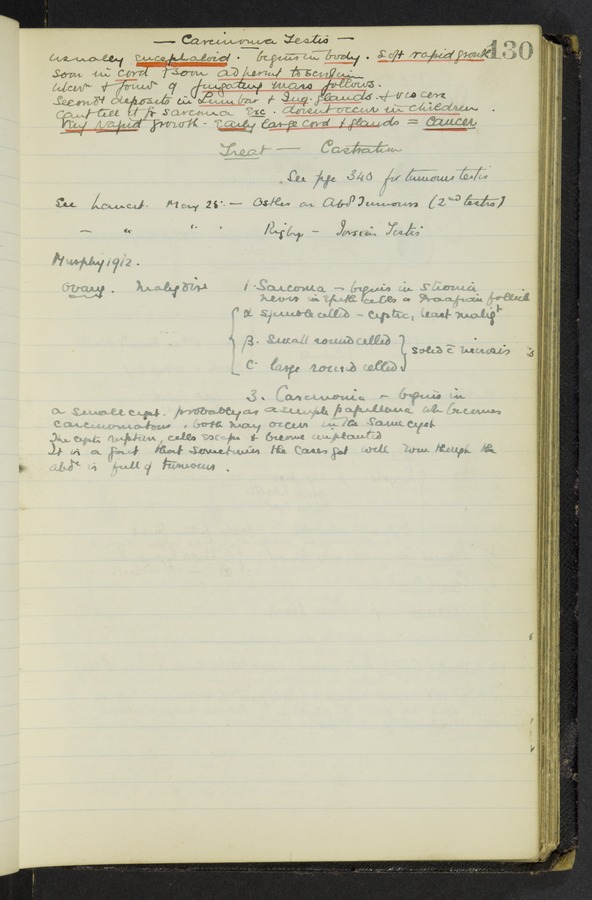 — Carcinoma Testis —
130
usually encephaloid. begins in body. Soft rapid growth
soon in cord & soon adherent to scrotum
ulcer & found of fungating mass follows.
Second^y deposits in Lumbar & Ing. glands. & viscera
Can't tell it fr sarcoma Exc. doesn't occur in children.
Very rapid growth - Early large cord & glands = cancer
Treat — Castration
See pge 340 for tumours testis
See Lancet. May 25. — on Abd Tumours (2nd testes)
— " " . Rigby — Torsion Testis
Murphy 1912.
Ovary. Malig dise 1. Sarcoma — begins in stroma
never in Epith cells a Graafian follicle
α spindle celled — cystic, least malig^t
β. Small round celled } solid c̄ necrosis
C. large round celled }
3. Carcinoma — begins in
a small cyst. probably as a simple papilloma wh becomes
carcinomatous. both may occur in the same cyst
The cysts rupture, cells escape & become implanted
It is a fact that sometimes the cases get well even though the
abd^n is full of tumours.